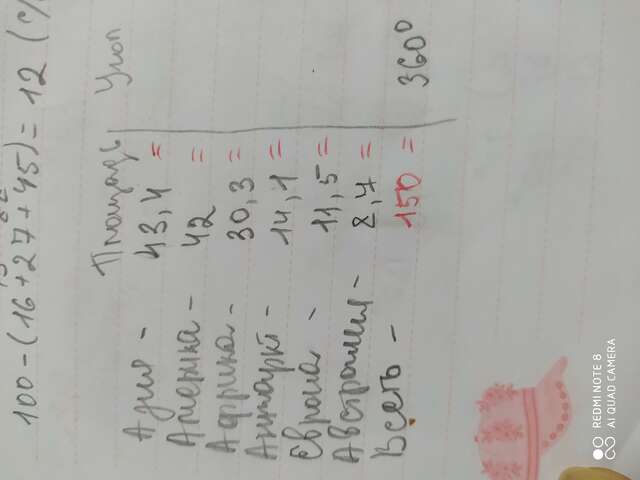 100 - (16 + 27 + 45) = 12 (
Площадь Угол
Азия - 43,4 =
Америка - 42 =
Африка - 30,3 =
Антаркт - 14,1 =
Европа - 11,5 =
Австралия - 8,7 =
Всего - 150 = 360°
REDMI NOTE 8
AI QUAD CAMERA